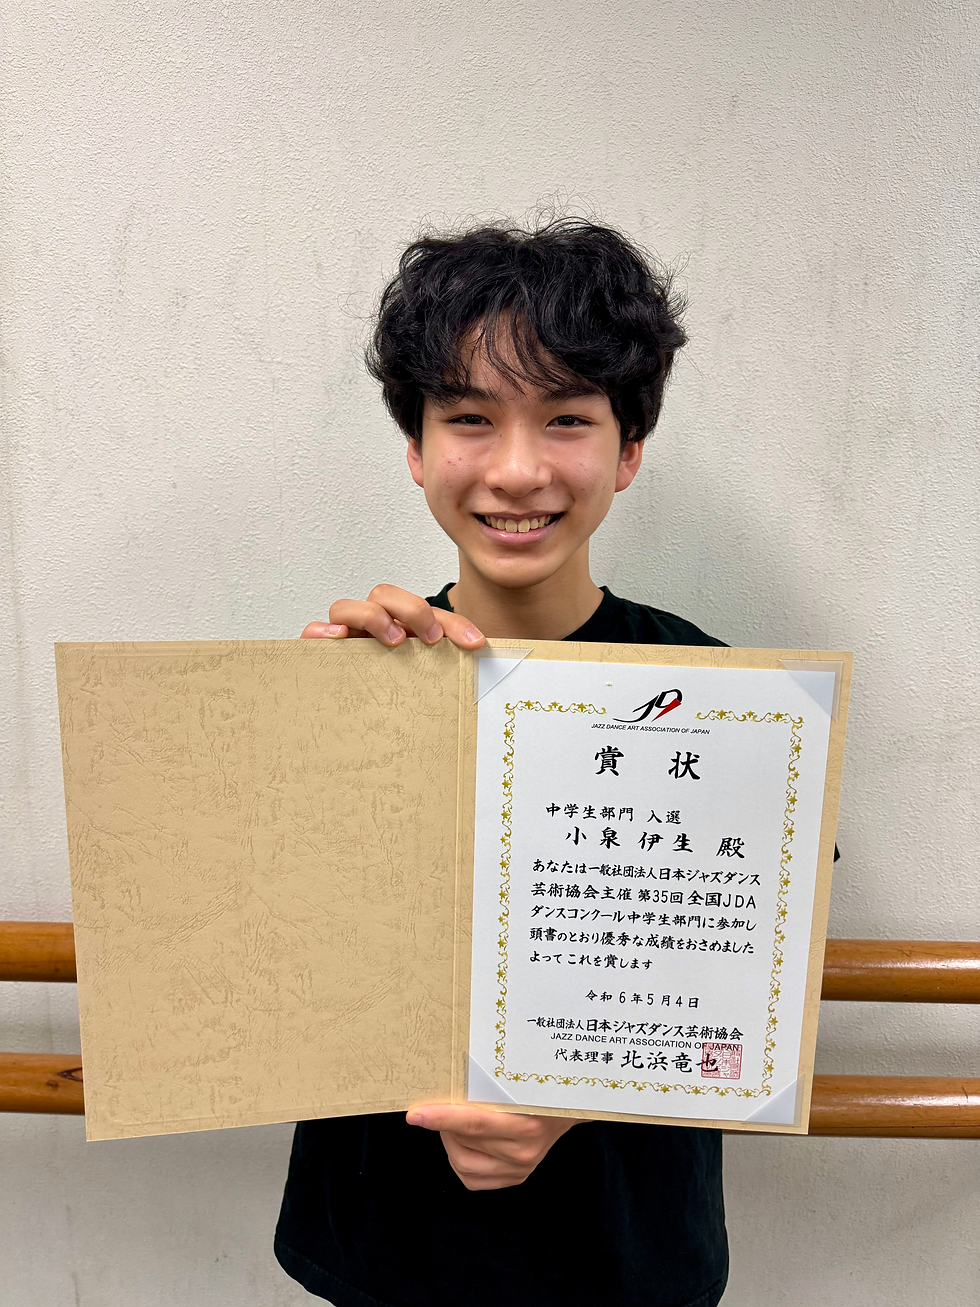 JAZZ DANCE ART ASSOCIATION OF JAPAN
賞 状
中学生部門 入選
小泉 伊生 殿
あなたは一般社団法人日本ジャズダンス
芸術協会主催 第35回 全国JDA
ダンスコンクール中学生部門に参加し
頭書のとおり優秀な成績をおさめました
よって これを賞します
令和 6 年 5 月 4 日
一般社団法人日本ジャズダンス芸術協会
JAZZ DANCE ART ASSOCIATION OF JAPAN
代表理事 北浜竜也